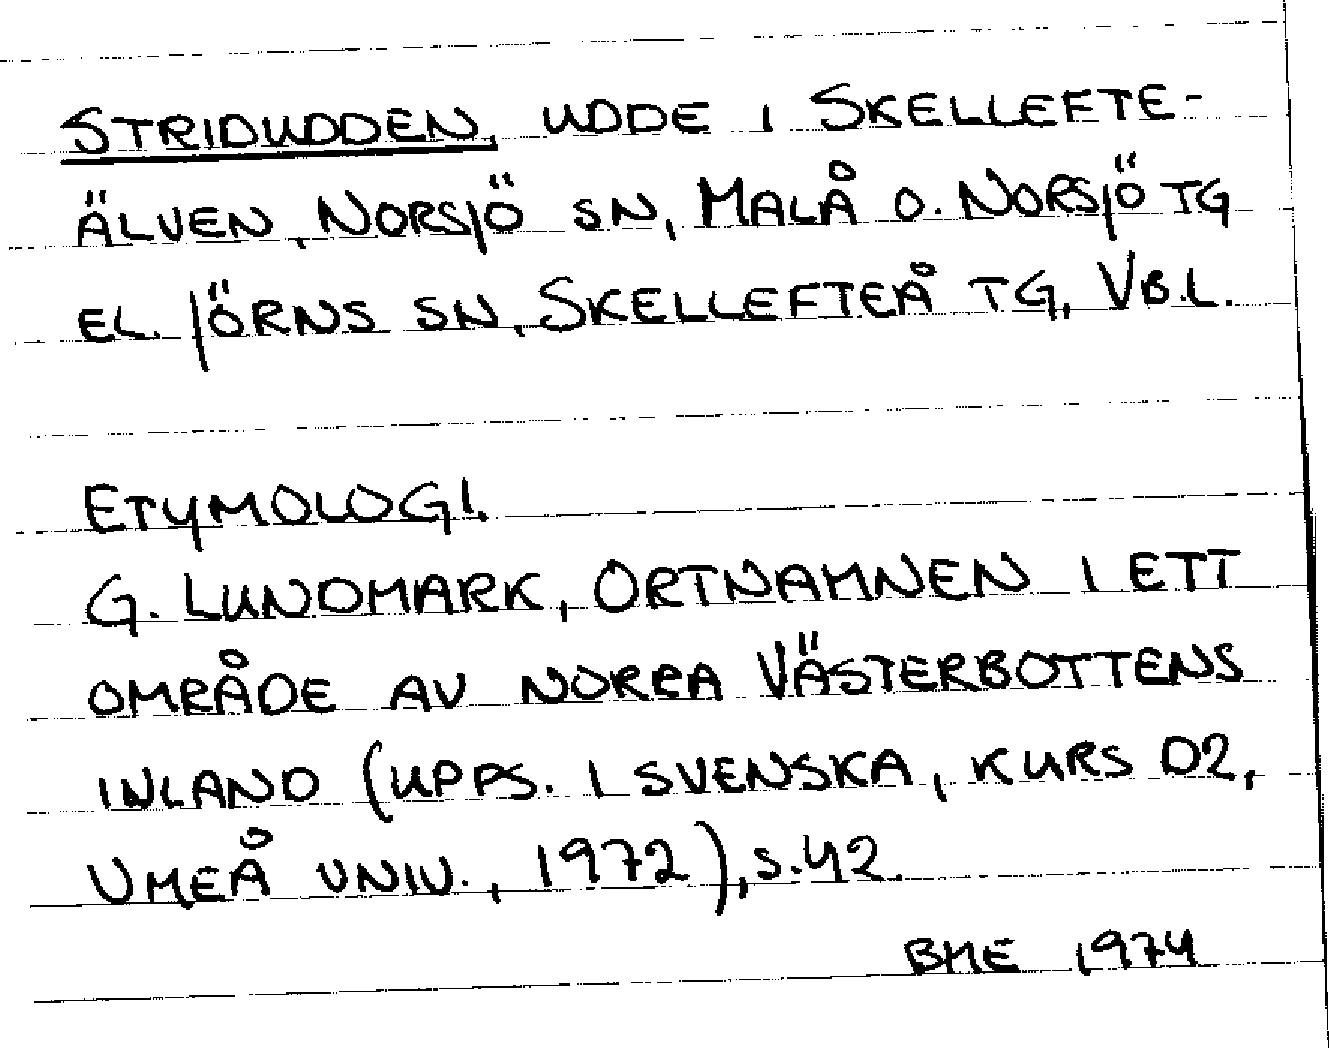 STRIDUDDEN, UDDE I SKELLEFTE-
ÄLVEN, NORSJÖ SN, MALÅ O. NORSJÖ TG
EL. JÖRNS SN, SKELLEFTEÅ TG, VB.L.
ETYMOLOGI.
G. LUNDMARK, ORTNAMNEN I ETT
OMRÅDE AV NORRA VÄSTERBOTTENS
INLAND (UPPS. I SVENSKA, KURS D2,
UMEÅ UNIV., 1972), S. 42.
BME 1974